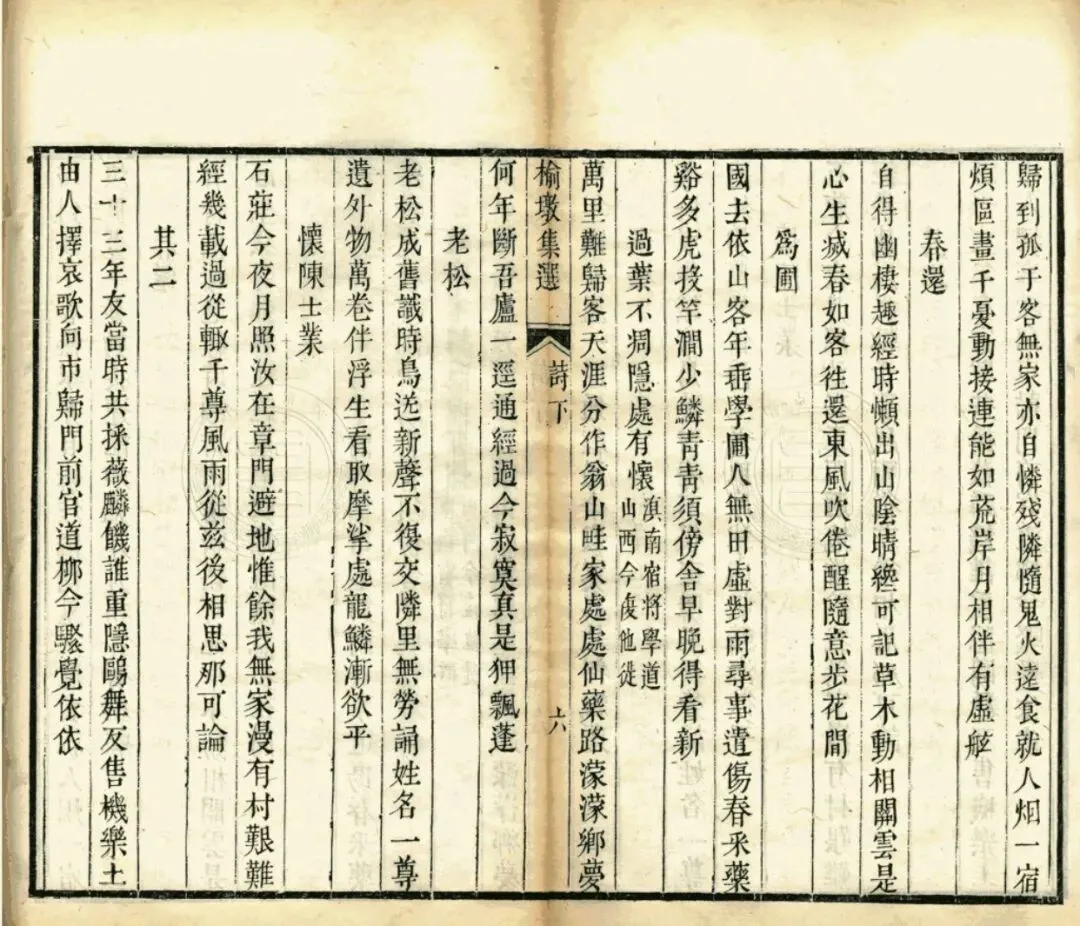 歸到孤于客無家亦自憐殘隣隨鬼火遠食就人烟一宿
煩區畫千憂動接連能如荒岸月相伴有虛舷
春還
自得幽棲趣經時懶出山陰晴纔可記草木動相關雲是
心生滅春如客徃還東風吹倦醒隨意步花間
爲圃
國去依山客年乖學圃人無田虛對雨尋事遣傷春采藥
谿多虎投竿澗少鱗青青須傍舍早晚得看新
過葉不凋隱處有懷滇南宿將學道
山西今復他徙
萬里難歸客天涯分作翁山畦家處處仙藥路濛濛鄉夢
榆墩集選
詩下
六
何年斷吾廬一逕通經過今寂寞真是狎飄蓬
老松
老松成舊識時鳥送新聲不復交隣里無勞誦姓名一尊
遺外物萬卷伴浮生看取摩挲處龍鱗漸欲平
懷陳士業
石莊今夜月照汝在章門避地惟餘我無家漫有村艱難
經幾載過從輙千尊風雨從兹後相思那可論
其二
三十三年友當時共採薇麟饑誰重隱鷗舞及售機樂土
由人擇哀歌向市歸門前官道柳今驟覺依依